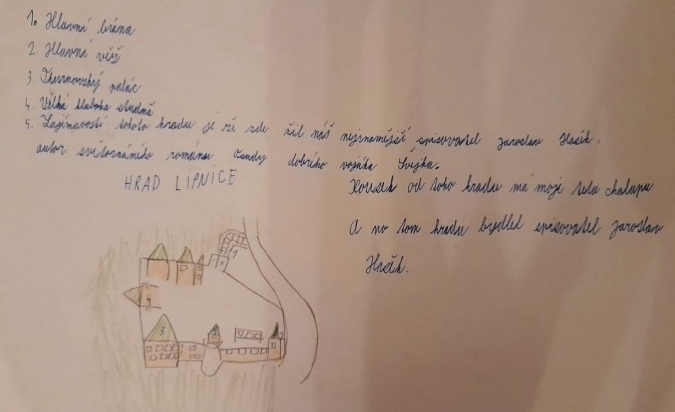 1. Hlavní brána
2. Hlavní věž
3. Thurnovský palác
4. Velká hluboka studně
5. Zajímavostí tohoto hradu je že zde žil náš nejznamější spisovatel Jaroslav Hašek.
autor světoznámího románu Osudy dobrího vojáka Švejka.
HRAD LIPNICE
Kousek od toho hradu má moje teta chalupu
A na tom hradu bydlel spisovatel Jaroslav
Hašek.
1
4
3
2